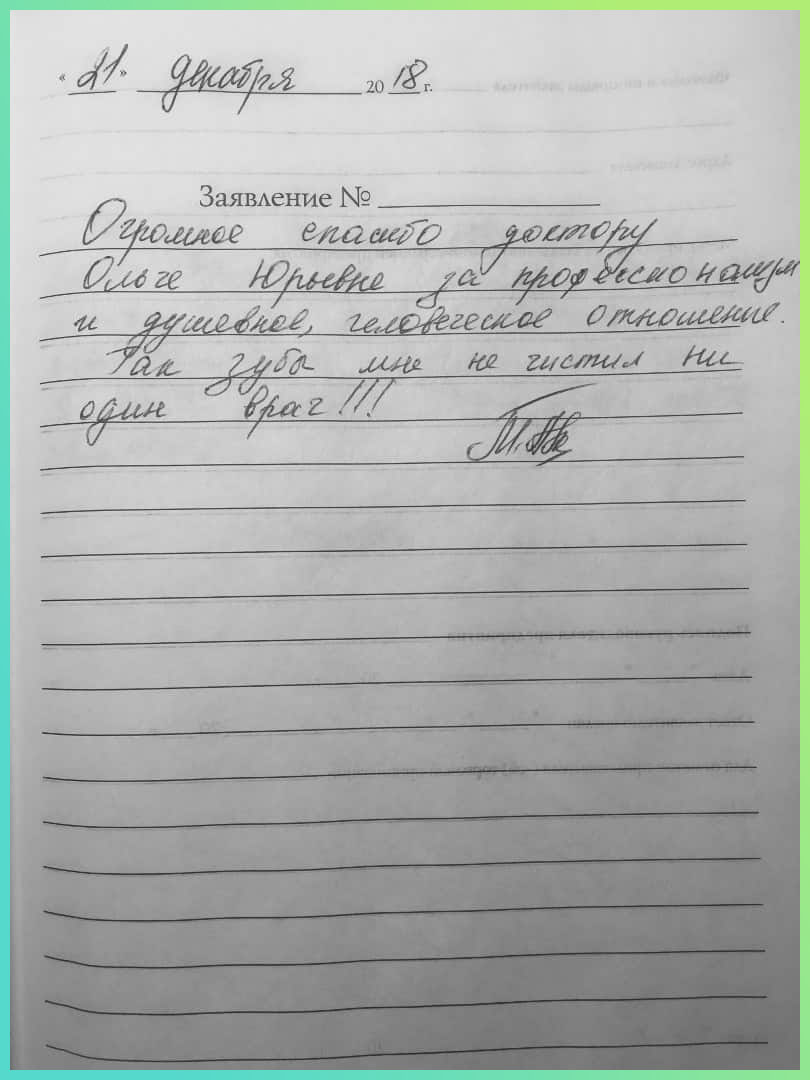 « 21 » декабря 2018 г.
Заявление №
Огромное спасибо доктору
Ольге Юрьевне за профессионализм
и душевное, человеческое отношение.
Так зубы мне не чистил ни
один врач!!!